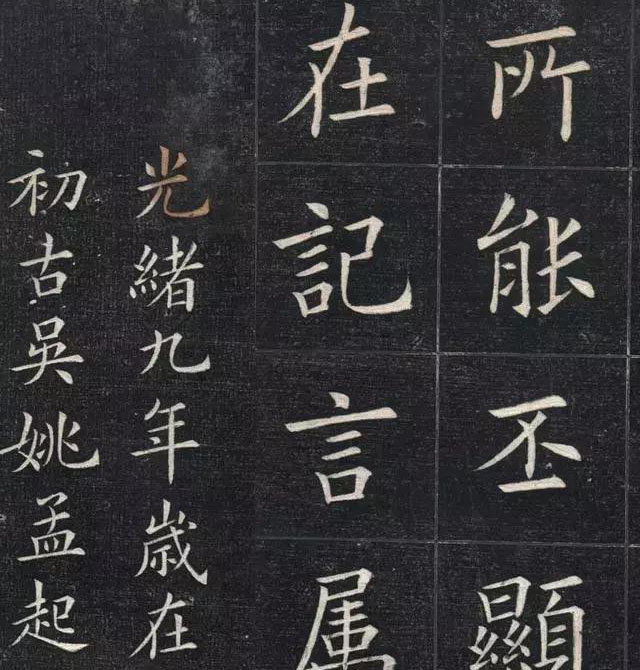 所能丕顯
在記言属
光緒九年歲在
初古吳姚孟起